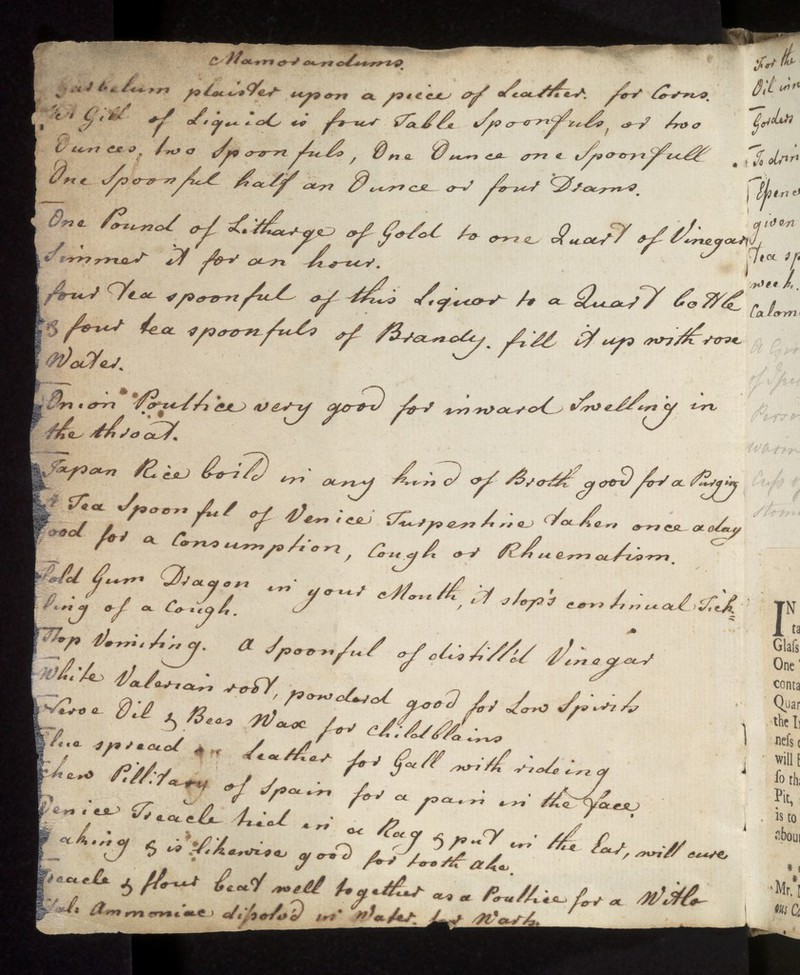 Mamorandums.
plaister upon a piece of Leather. for Corns.
Gill of Liquid is four Table Spoonfuls, or two
Ounces, two Spoon fuls, One Ounce one Spoonfull
One Spoonful half an Ounce or four Drams.
One Pound of Litharge of Gold to one Quart of Vinegar
Simmer it for an hour.
four Tea spoonful of this Liquor to a Quart Bottle
& four tea spoonfuls of Brandy. fill it up with rose
Water.
Onion Poultice very good for inward Swelling in
the throat.
Japan Rice boil'd in any kind of Broth good for a Purging
A Tea Spoonful of Venice Turpentine taken once a day
good for a Consumption, Cough or Rhuematism.
Hold Gum Dragon in your Mouth, it stop's continual Tick=
ling of a Cough.
Stop Vomiting. a Spoonful of distill'd Vinegar
White Valerian root, powderd good for Low Spirits
Neroe Oil & Bees Wax for Childblains
Glue spread on Leather for Gall with rideing
Chew Pillitary of Spain for a pain in the face
Venice Treacle tied in a Rag & put in the Ear, will cure
aking & is likewise good for tooth ake.
Treacle & flour beat well together as a Poultice for a Witlo
Sal Ammoniac dissolv'd in Water. for Warts.
For the
Oil
To drin
given
Tea sp
week.
Calom
IN
ta
Glass
One
conta
Quar
the In
ness
will
so th
Pit,
is to
abou
Mr.
ous